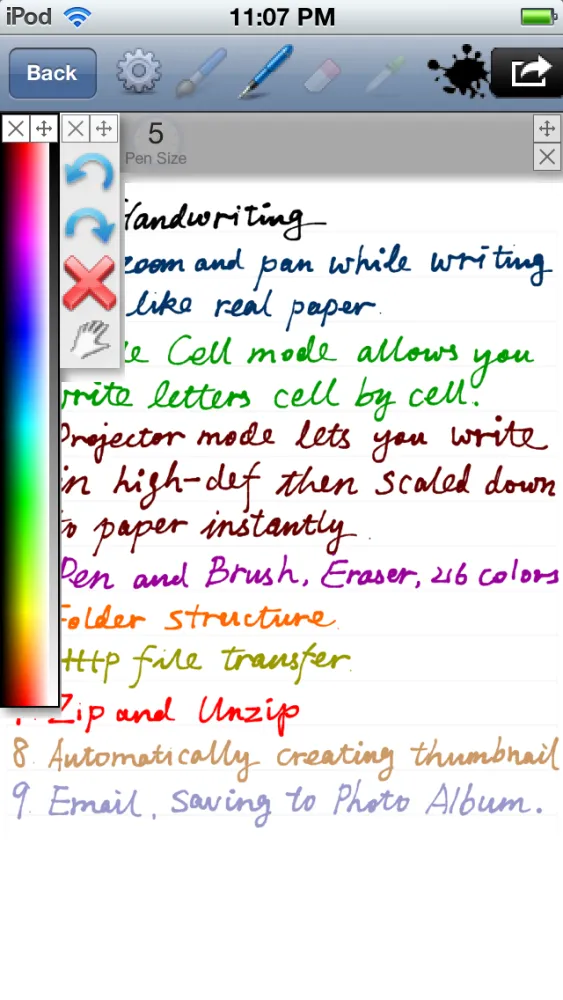 iPod 11:07 PM
Back
5
Pen Size
Handwriting
zoom and pan while writing
like real paper.
Cell mode allows you
write letters cell by cell.
Projector mode lets you write
in high-def then scaled down
to paper instantly.
Pen and Brush, Eraser, 216 colors
Folder structure.
Http file transfer.
7. Zip and Unzip
8. Automatically creating thumbnail
9. Email, Saving to Photo Album.